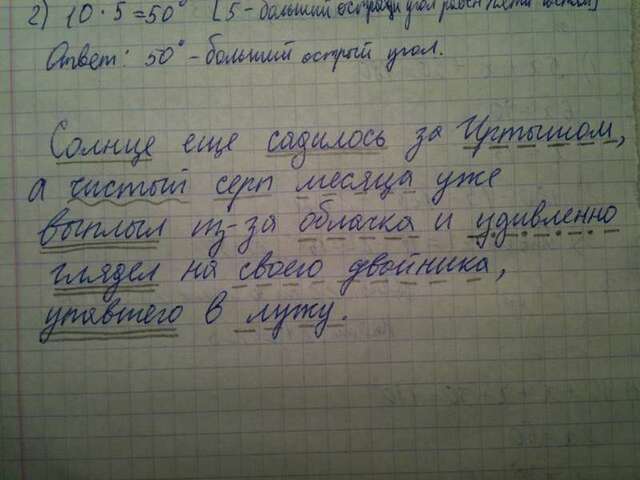 2) 10 · 5 = 50° [5 - больший острый угол равен пяти частям]
Ответ: 50° - больший острый угол.
Солнце еще садилось за Иртышом,
а чистый серп месяца уже
выплыл из-за облачка и удивленно
глядел на своего двойника,
упавшего в лужу.